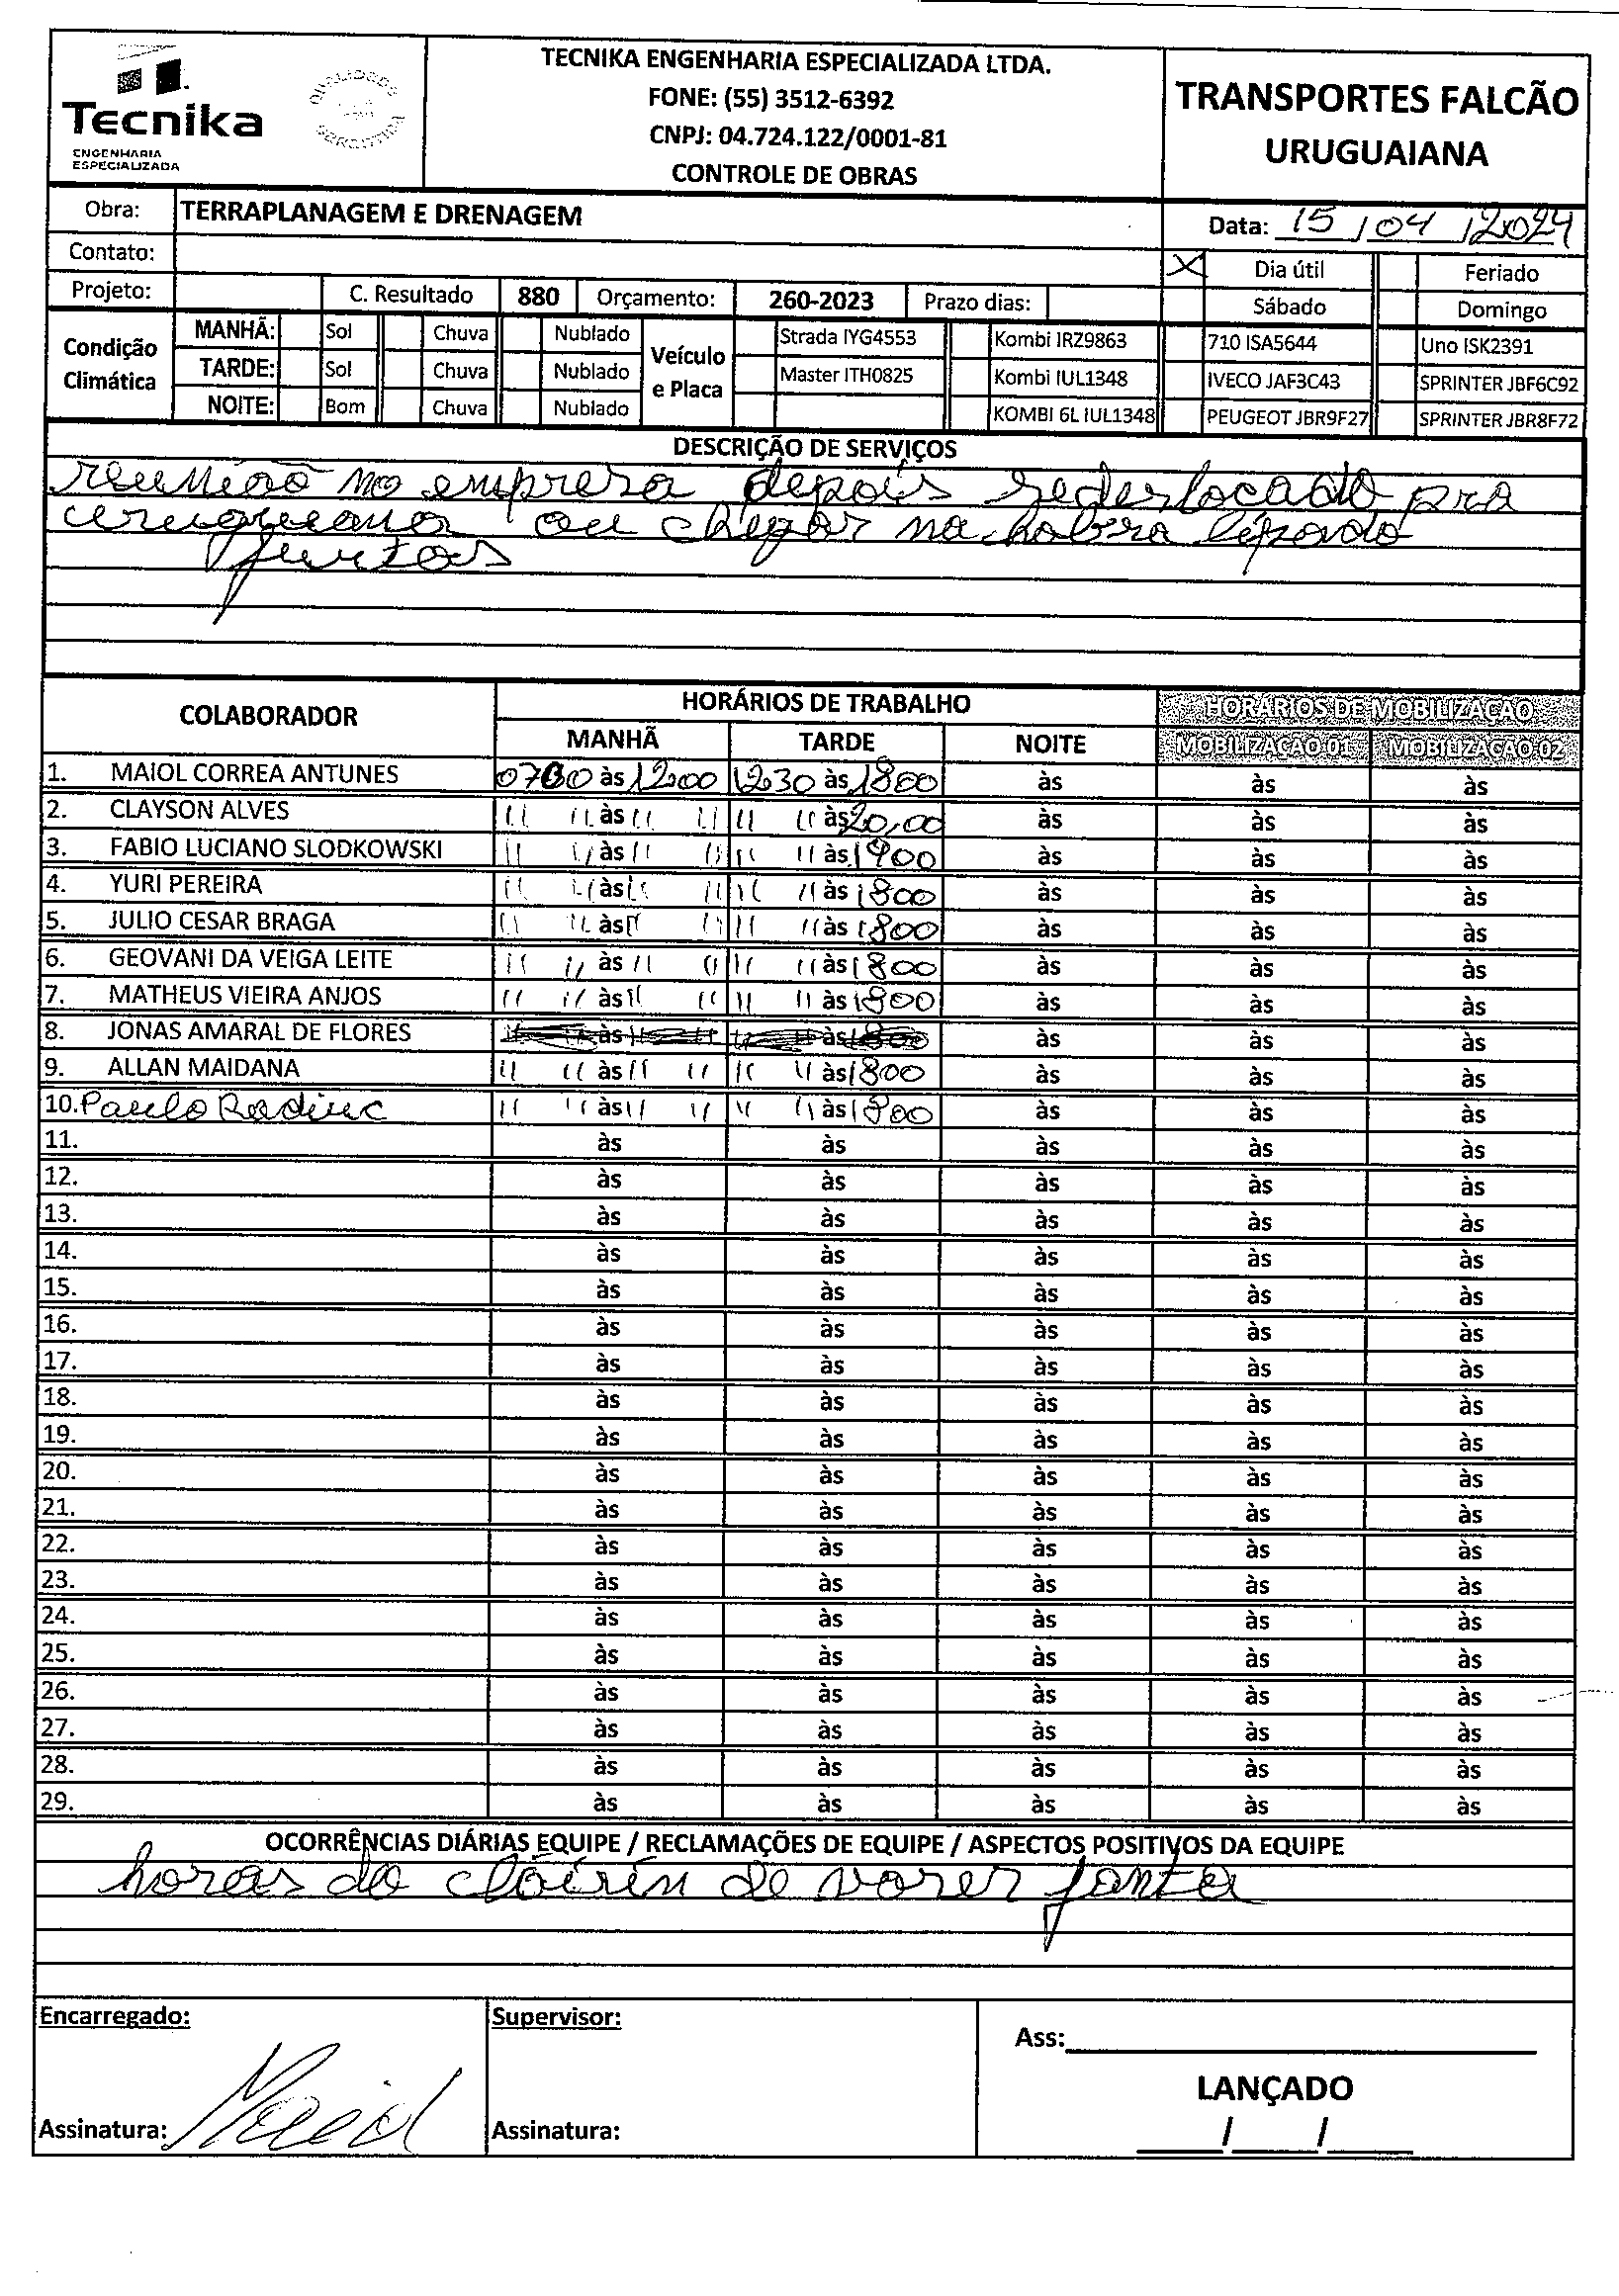 Tecnika
ENGENHARIA
ESPECIALIZADA
QUALIDADE
TECNIKA ENGENHARIA ESPECIALIZADA LTDA.
FONE: (55) 3512-6392
CNPJ: 04.724.122/0001-81
CONTROLE DE OBRAS
TRANSPORTES FALCÃO
URUGUAIANA
Obra: TERRAPLANAGEM E DRENAGEM
Data: 15/04/2024
Contato:
X Dia útil Feriado
Projeto: C. Resultado 880 Orçamento: 260-2023 Prazo dias:
Sábado Domingo
Condição Climática
MANHÃ: Sol Chuva Nublado
TARDE: Sol Chuva Nublado
NOITE: Bom Chuva Nublado
Veículo e Placa
Strada IYG4553 Kombi IRZ9863 710 ISA5644 Uno ISK2391
Master ITH0825 Kombi IUL1348 IVECO JAF3C43 SPRINTER JBF6C92
KOMBI 6L IUL1348 PEUGEOT JBR9F27 SPRINTER JBR8F72
DESCRIÇÃO DE SERVIÇOS
reunião no empresa depois sedeslocado pra
ou chegar na
juntas
COLABORADOR HORÁRIOS DE TRABALHO HORÁRIOS DE MOBILIZAÇÃO
MANHÃ TARDE NOITE MOBILIZAÇÃO 01 MOBILIZAÇÃO 02
1. MAIOL CORREA ANTUNES 0700 às 12:00 12:30 às 1800 às às às
2. CLAYSON ALVES " " às " " " " às 20,00 às às às
3. FABIO LUCIANO SLODKOWSKI " " às " " " " às 1900 às às às
4. YURI PEREIRA " " às " " " " às 1800 às às às
5. JULIO CESAR BRAGA " " às " " " " às 1800 às às às
6. GEOVANI DA VEIGA LEITE " " às " " " " às 1800 às às às
7. MATHEUS VIEIRA ANJOS " " às " " " " às 1800 às às às
8. JONAS AMARAL DE FLORES às às 1800 às às às
9. ALLAN MAIDANA " " às " " " " às 1800 às às às
10. Paulo " " às " " " " às 1800 às às às
11. às às às às às
12. às às às às às
13. às às às às às
14. às às às às às
15. às às às às às
16. às às às às às
17. às às às às às
18. às às às às às
19. às às às às às
20. às às às às às
21. às às às às às
22. às às às às às
23. às às às às às
24. às às às às às
25. às às às às às
26. às às às às às
27. às às às às às
28. às às às às às
29. às às às às às
OCORRÊNCIAS DIÁRIAS EQUIPE / RECLAMAÇÕES DE EQUIPE / ASPECTOS POSITIVOS DA EQUIPE
horas do de janta
Encarregado: Supervisor:
Ass:
LANÇADO
Assinatura: Assinatura:
/ /